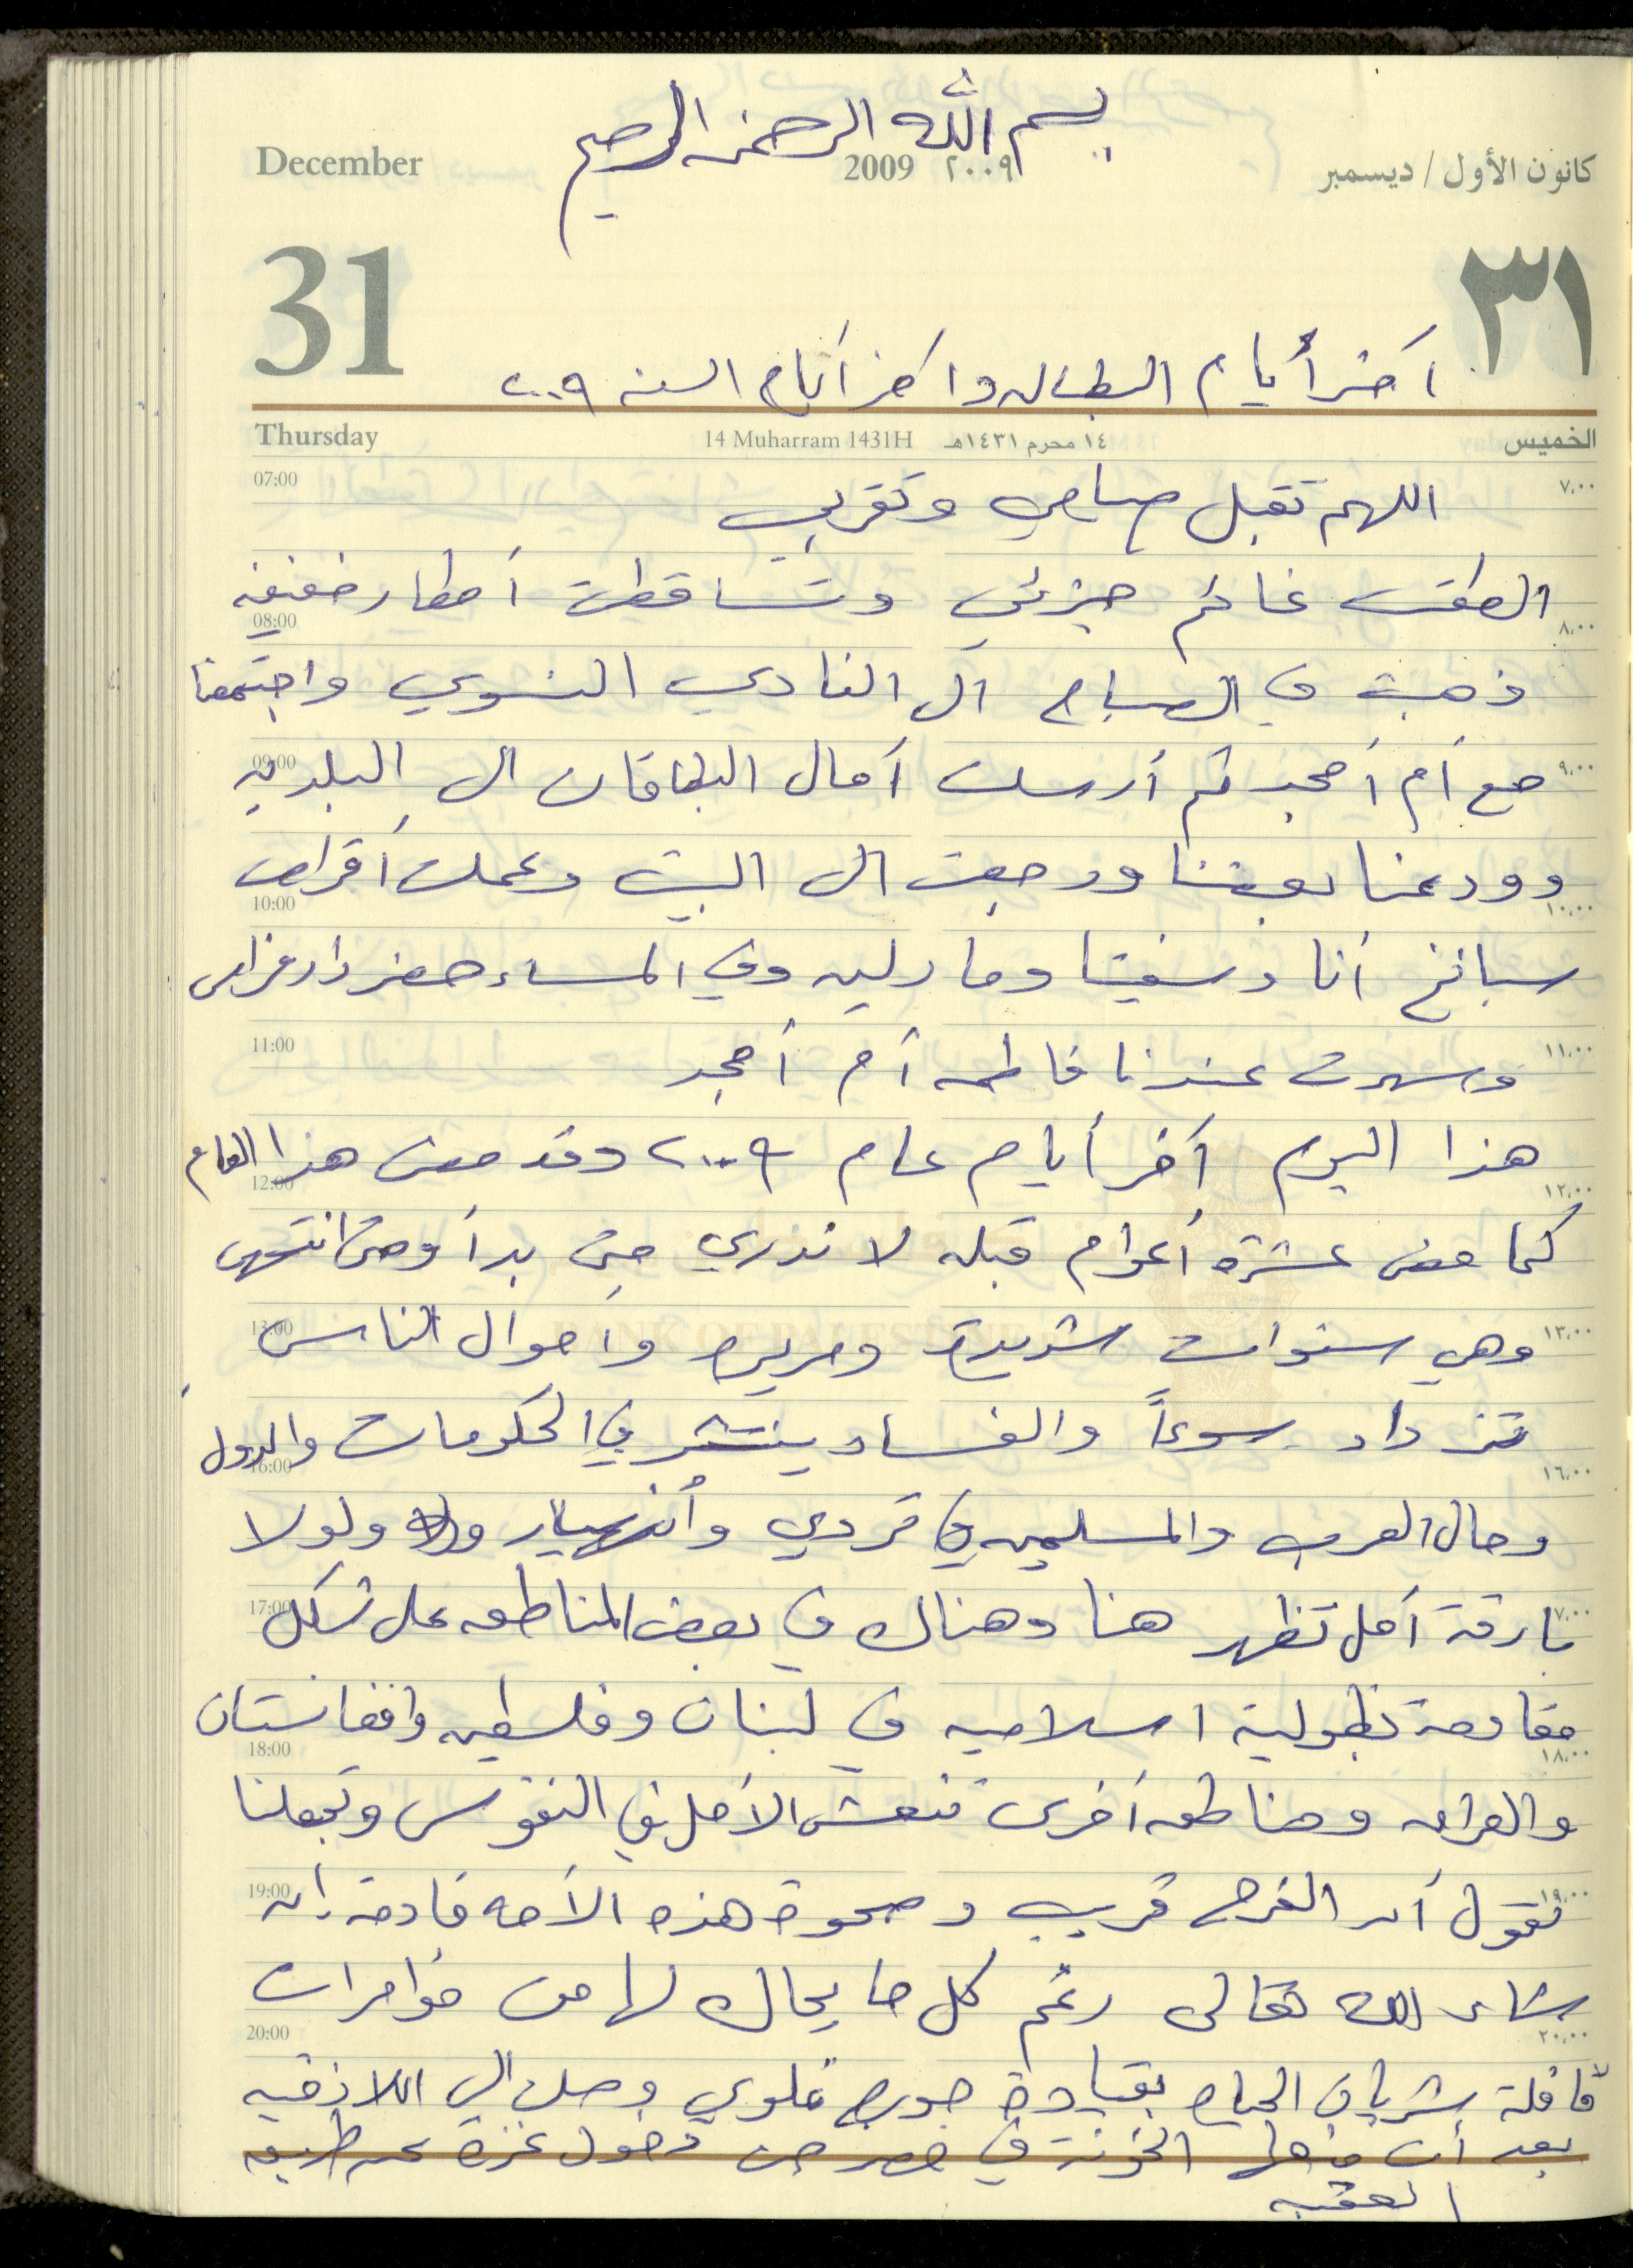 بسم الله الرحمن الرحيم
December 2009 ٢٠٠٩ كانون الأول / ديسمبر
31 ٣١
آخر أيام البطاله وآخر أيام السنه ٢٠٠٩
Thursday 14 Muharram 1431H ١٤ محرم ١٤٣١هـ الخميس
07:00 اللهم تقبل صيامي وتقربي ٧،٠٠
الطقس غائم جزئي وتساقطت أمطار خفيفه
08:00 ٨،٠٠
ذهبت في الصباح الى النادي النسوي واجتمعنا
09:00 مع أم أمجد ثم أرسلت آمال البطاقات الى البلديه ٩،٠٠
وودعنا بعضنا ورجعت الى البيت وعملت أقراص
10:00 ١٠،٠٠
سبانخ أنا و ومارلين وفي المساء حضر دار
11:00 ١١،٠٠
وسهرت عندنا فاطمه أم أمجد
هذا اليوم آخر أيام عام ٢٠٠٩ وقد مضى هذا العام
12:00 ١٢،٠٠
كما مضى عشرة أعوام قبله لا ندري متى بدأ ومتى انتهى
13:00 وهي سنوات شديدة ومريره وأحوال الناس ١٣،٠٠
BANK OF PALESTINE
تزداد سوءاً والفساد ينتشر في الحكومات والدول
16:00 ١٦،٠٠
وحال العرب والمسلمين في تردي وأنهيار ولولا
17:00 بارقة أمل تظهر هنا وهناك في بعض المناطق على شكل ١٧،٠٠
مقاومة بطولية اسلاميه في لبنان وفلسطين وافغانستان
18:00 ١٨،٠٠
والعراق ومناطق أخرى تنعش الأمل في النفوس وتجعلنا
19:00 نقول أن الفرج قريب وصحوة هذه الأمه قادمة إن ١٩،٠٠
شاء الله تعالى رغم كل ما يحاك لها من مؤامرات
20:00 ٢٠،٠٠
قافلة شريان الحياه بقيادة جورج غلوي وصلت الى اللاذقيه
بعد أن منعها الخونة في مصر من دخول غزه عن طريق
العقبه